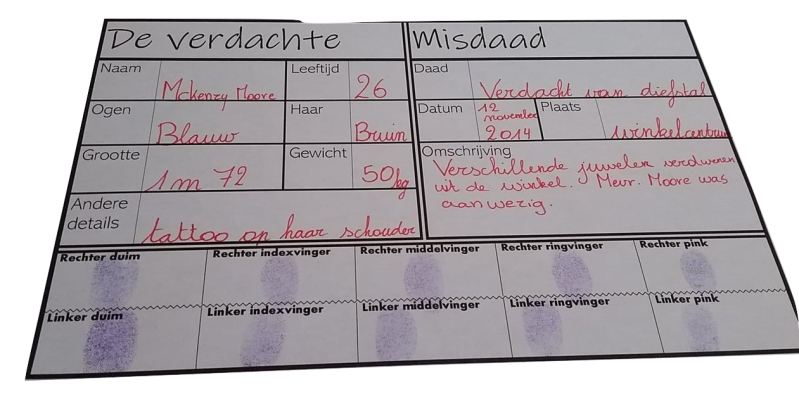 De verdachte
Misdaad
Naam
Mckenzy Moore
Leeftijd
26
Ogen
Blauw
Haar
Bruin
Grootte
1m 72
Gewicht
50kg
Andere details
tattoo op haar schouder
Daad
Verdacht van diefstal
Datum
12
november
2014
Plaats
winkelcentrum
Omschrijving
Verschillende juwelen verdwenen
uit de winkel. Mevr. Moore was
aanwezig.
Rechter duim
Rechter indexvinger
Rechter middelvinger
Rechter ringvinger
Rechter pink
Linker duim
Linker indexvinger
Linker middelvinger
Linker ringvinger
Linker pink